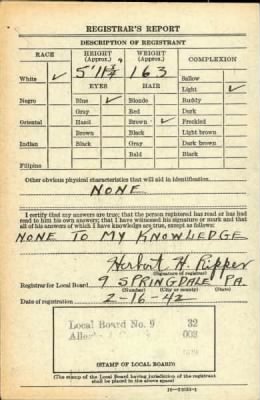 REGISTRAR'S REPORT
DESCRIPTION OF REGISTRANT
RACE HEIGHT (Approx.) WEIGHT (Approx.) COMPLEXION
White ✓ 5' 11 163 Sallow
EYES HAIR Light ✓
Negro Blue ✓ Blonde Ruddy
Gray Red Dark
Oriental Hazel Brown ✓ Freckled
Brown Black Light brown
Indian Black Gray Dark brown
Bald Black
Filipino
Other obvious physical characteristics that will aid in identification
NONE
I certify that my answers are true; that the person registered has read or has had
read to him his own answers; that I have witnessed his signature or mark and that
all of his answers of which I have knowledge are true, except as follows:
NONE TO MY KNOWLEDGE
Herbert H.
(Signature of registrar)
Registrar for Local Board 9 SPRINGDALE PA.
(Number) (City or county) (State)
Date of registration 2-16-42
Local Board No. 9 32
003
(STAMP OF LOCAL BOARD)
(The stamp of the Local Board having jurisdiction of the registrant
shall be placed in the above space)